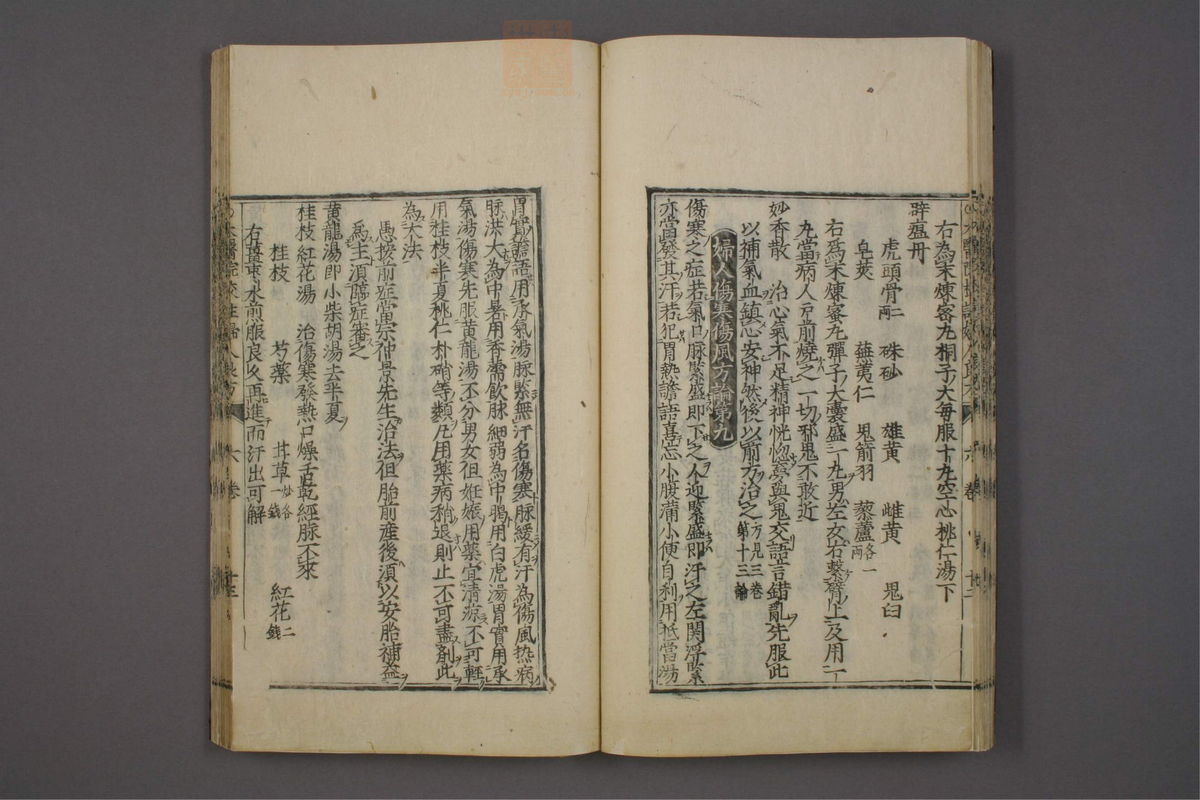 右為末煉蜜丸桐子大每服十丸空心桃仁湯下
辟瘟丹
虎頭骨二兩 硃砂 雄黄 雌黄 鬼臼
皂莢 蕪荑仁 鬼箭羽 藜蘆各一兩
右爲末煉蜜丸彈子大囊盛一丸男左女右繫臂上及用一
丸當病人戸前燒之一切邪鬼不敢近
妙香散 治心氣不足精神恍惚夢與鬼交語言錯亂先服此
以補氣血鎮心安神然後以前方治之方見三卷第十三論
婦人傷寒傷風方論第九
傷寒之症若氣口脉緊盛即下之人迎緊盛即汗之左関浮緊
亦當發其汗若犯胃熱譫語喜忘小腹滿小便自利用抵當湯
胃實譫語用承氣湯脉緊無汗名傷寒脉緩有汗為傷風热病
脉洪大為中暑用香薷飲脉細弱為中暍用白虎湯胃實用承
氣湯傷寒先服黄龍湯不分男女但姙娠用薬宜清凉不可輕
用桂枝半夏桃仁朴硝等類凢用薬病稍退則止不可盡剤此
為大法
愚按前症當宗仲景先生治法但胎前産後須以安胎補益
爲主須臨症審之
黄龍湯即小柴胡湯去半夏
桂枝紅花湯 治傷寒發熱口燥舌乾經脉不來
桂枝 芍薬 甘草炒各一錢 紅花二錢
右薑棗水煎服良久再進而汗出可解
六卷